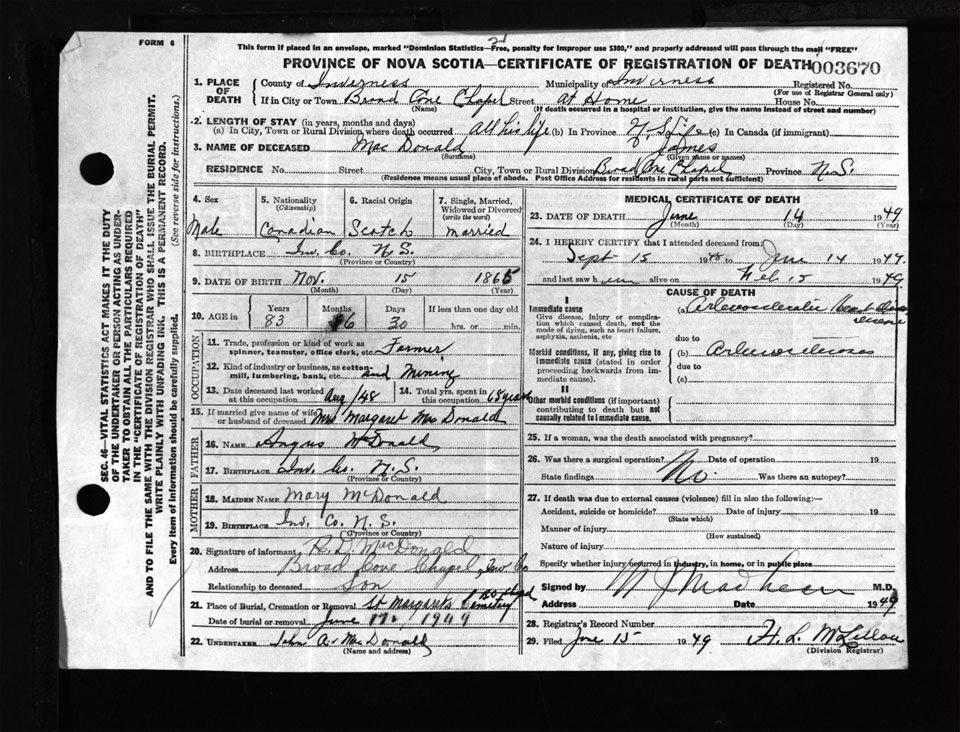 FORM 6
2
This form if placed in an envelope, marked "Dominion Statistics—Free, penalty for improper use $300," and properly addressed will pass through the mail "FREE"
PROVINCE OF NOVA SCOTIA—CERTIFICATE OF REGISTRATION OF DEATH 003670
1. PLACE OF DEATH
County of Inverness Municipality of Inverness Registered No.
(For use of Registrar General only)
If in City or Town Broad Cove Chapel Street At Home House No.
(Name) (If death occurred in a hospital or institution, give the name instead of street and number)
2. LENGTH OF STAY (in years, months and days)
(a) In City, Town or Rural Division where death occurred All his life (b) In Province Life (c) In Canada (if immigrant)
3. NAME OF DECEASED Mac Donald James
(Surname) (Given name or names)
RESIDENCE No. Street City, Town or Rural Division Broad Cove Chapel Province N.S.
(Residence means usual place of abode. Post Office Address for residents in rural parts not sufficient)
4. Sex Male
5. Nationality (Citizenship) Canadian
6. Racial Origin Scotch
7. Single, Married, Widowed or Divorced (write the word) married
8. BIRTHPLACE Inv. Co. N.S.
(Province or Country)
9. DATE OF BIRTH Nov. 15 1865
(Month) (Day) (Year)
10. AGE in Years Months Days If less than one day old
83 6 30 hrs. or min.
OCCUPATION
11. Trade, profession or kind of work as spinner, teamster, office clerk, etc. Farmer
12. Kind of industry or business, as cotton-mill, lumbering, bank, etc. and Mining
13. Date deceased last worked at this occupation Aug/48
14. Total yrs. spent in this occupation 68 years
15. If married give name of wife or husband of deceased Mrs Margaret Mac Donald
FATHER
16. Name Angus McDonald
17. Birthplace Inv. Co. N.S.
(Province or Country)
MOTHER
18. MAIDEN NAME Mary McDonald
19. BIRTHPLACE Inv. Co. N.S.
(Province or Country)
20. Signature of informant R.D. MacDonald
Address Broad Cove Chapel, Inv Co
Relationship to deceased Son
21. Place of Burial, Cremation or Removal St Margarets Cemetery
Date of burial or removal June 17, 1949
22. UNDERTAKER John A. MacDonald
(Name and address)
MEDICAL CERTIFICATE OF DEATH
23. DATE OF DEATH June 14 1949
(Month) (Day) (Year)
24. I HEREBY CERTIFY that I attended deceased from:
Sept 15 1948 to June 14 1949
and last saw h im alive on Feb. 15 1949
CAUSE OF DEATH
I
Immediate cause (a) Heart disease
Give disease, injury or complication which caused death, not the mode of dying, such as heart failure, asphyxia, asthenia, etc
due to
Morbid conditions, if any, giving rise to immediate cause (stated in order proceeding backwards from immediate cause). (b)
due to
(c)
II
Other morbid conditions (if important) contributing to death but not causally related to immediate cause.
25. If a woman, was the death associated with pregnancy?
26. Was there a surgical operation? Date of operation 19
No
State findings Was there an autopsy?
27. If death was due to external causes (violence) fill in also the following:—
Accident, suicide or homicide? Date of injury 19
(State which)
Manner of injury
(How sustained)
Nature of injury
Specify whether injury occurred in industry, in home, or in public place
Signed by M.D.
Address Date 1949
28. Registrar's Record Number
29. Filed June 15 1949 H. L. McLellan
(Division Registrar)
SEC. 46—VITAL STATISTICS ACT MAKES IT THE DUTY
OF THE UNDERTAKER OR PERSON ACTING AS UNDER-
TAKER TO OBTAIN ALL THE PARTICULARS REQUIRED
IN THE "CERTIFICATE OF REGISTRATION OF DEATH"
AND TO FILE THE SAME WITH THE DIVISION REGISTRAR WHO SHALL ISSUE THE BURIAL PERMIT.
WRITE PLAINLY WITH UNFADING INK. THIS IS A PERMANENT RECORD.
Every item of information should be carefully supplied. (See reverse side for instructions.)